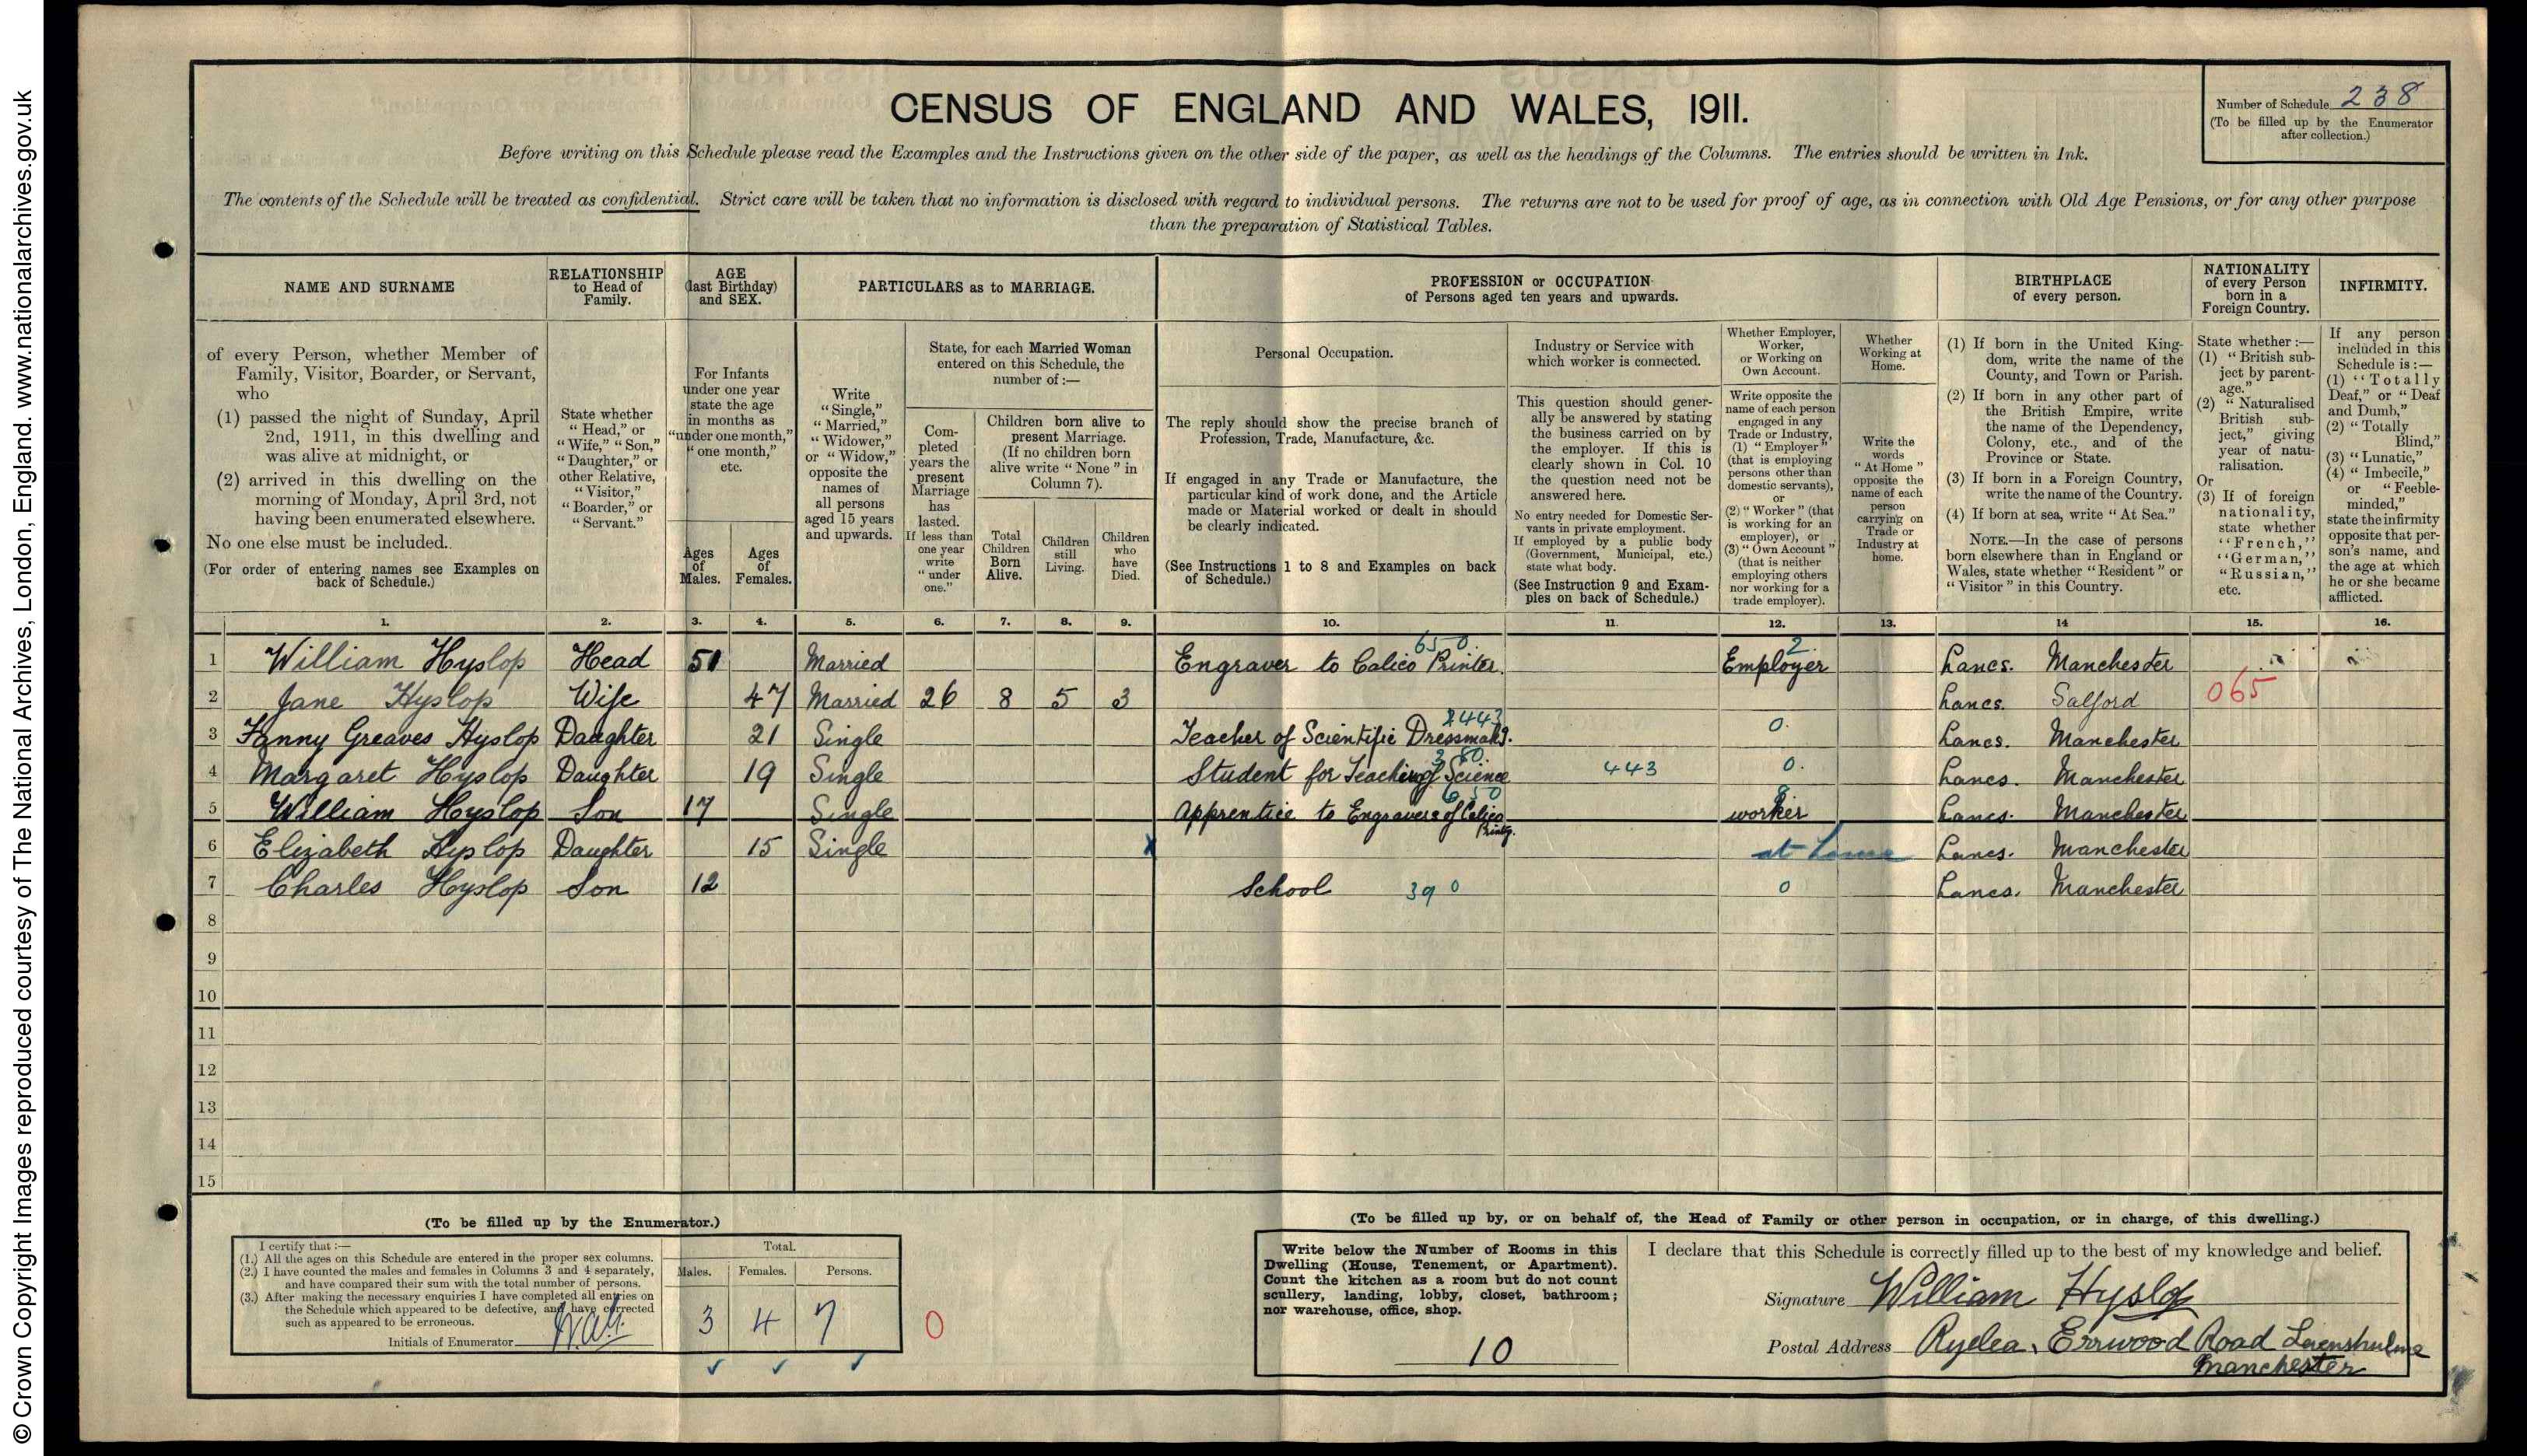 © Crown Copyright Images reproduced courtesy of The National Archives, London, England. www.nationalarchives.gov.uk
CENSUS OF ENGLAND AND WALES, 1911.
Number of Schedule 238
(To be filled up by the Enumerator
after collection.)
Before writing on this Schedule please read the Examples and the Instructions given on the other side of the paper, as well as the headings of the Columns. The entries should be written in Ink.
The contents of the Schedule will be treated as confidential. Strict care will be taken that no information is disclosed with regard to individual persons. The returns are not to be used for proof of age, as in connection with Old Age Pensions, or for any other purpose
than the preparation of Statistical Tables.
NAME AND SURNAME
RELATIONSHIP
to Head of
Family.
AGE
(last Birthday)
and SEX.
PARTICULARS as to MARRIAGE.
PROFESSION or OCCUPATION
of Persons aged ten years and upwards.
BIRTHPLACE
of every person.
NATIONALITY
of every Person
born in a
Foreign Country.
INFIRMITY.
of every Person, whether Member of
Family, Visitor, Boarder, or Servant,
who
(1) passed the night of Sunday, April
2nd, 1911, in this dwelling and
was alive at midnight, or
(2) arrived in this dwelling on the
morning of Monday, April 3rd, not
having been enumerated elsewhere.
No one else must be included.
(For order of entering names see Examples on
back of Schedule.)
State whether
"Head," or
"Wife," "Son,"
"Daughter," or
other Relative,
"Visitor,"
"Boarder," or
"Servant."
For Infants
under one year
state the age
in months as
"under one month,"
"one month,"
etc.
Ages
of
Males.
Ages
of
Females.
Write
"Single,"
"Married,"
"Widower,"
or "Widow,"
opposite the
names of
all persons
aged 15 years
and upwards.
State, for each Married Woman
entered on this Schedule, the
number of :—
Com-
pleted
years the
present
Marriage
has
lasted.
If less than
one year
write
"under
one."
Children born alive to
present Marriage.
(If no children born
alive write "None" in
Column 7).
Total
Children
Born
Alive.
Children
still
Living.
Children
who
have
Died.
Personal Occupation.
The reply should show the precise branch of
Profession, Trade, Manufacture, &c.
If engaged in any Trade or Manufacture, the
particular kind of work done, and the Article
made or Material worked or dealt in should
be clearly indicated.
(See Instructions 1 to 8 and Examples on back
of Schedule.)
Industry or Service with
which worker is connected.
This question should gener-
ally be answered by stating
the business carried on by
the employer. If this is
clearly shown in Col. 10
the question need not be
answered here.
No entry needed for Domestic Ser-
vants in private employment.
If employed by a public body
(Government, Municipal, etc.)
state what body.
(See Instruction 9 and Exam-
ples on back of Schedule.)
Whether Employer,
Worker,
or Working on
Own Account.
Write opposite the
name of each person
engaged in any
Trade or Industry,
(1) "Employer"
(that is employing
persons other than
domestic servants),
or
(2) "Worker" (that
is working for an
employer), or
(3) "Own Account"
(that is neither
employing others
nor working for a
trade employer).
Whether
Working at
Home.
Write the
words
"At Home"
opposite the
name of each
person
carrying on
Trade or
Industry at
home.
(1) If born in the United King-
dom, write the name of the
County, and Town or Parish.
(2) If born in any other part of
the British Empire, write
the name of the Dependency,
Colony, etc., and of the
Province or State.
(3) If born in a Foreign Country,
write the name of the Country.
(4) If born at sea, write "At Sea."
NOTE.—In the case of persons
born elsewhere than in England or
Wales, state whether "Resident" or
"Visitor" in this Country.
State whether :—
(1) "British sub-
ject by parent-
age."
(2) "Naturalised
British sub-
ject," giving
year of natu-
ralisation.
Or
(3) If of foreign
nationality,
state whether
"French,"
"German,"
"Russian,"
etc.
If any person
included in this
Schedule is :—
(1) "Totally
Deaf," or "Deaf
and Dumb,"
(2) "Totally
Blind,"
(3) "Lunatic,"
(4) "Imbecile,"
or "Feeble-
minded,"
state the infirmity
opposite that per-
son's name, and
the age at which
he or she became
afflicted.
1. 2. 3. 4. 5. 6. 7. 8. 9. 10. 11. 12. 13. 14 15. 16.
650. 2.
1 William Hyslop Head 51 Married Engraver to Calico Printer Employer Lancs. Manchester
2 Jane Hyslop Wife 47 Married 26 8 5 3 Lancs. Salford 065
2443
3 Fanny Greaves Hyslop Daughter 21 Single Teacher of Scientific Dressmakg. 0. Lancs. Manchester
380.
4 Margaret Hyslop Daughter 19 Single Student for Teaching of Science 443 0. Lancs. Manchester
650
5 William Hyslop Son 17 Single Apprentice to Engravers of Calico Printg. worker Lancs. Manchester
6 Elizabeth Hyslop Daughter 15 Single at home Lancs. Manchester
7 Charles Hyslop Son 12 School 390 0 Lancs. Manchester
8
9
10
11
12
13
14
15
(To be filled up by the Enumerator.)
I certify that :—
(1.) All the ages on this Schedule are entered in the proper sex columns.
(2.) I have counted the males and females in Columns 3 and 4 separately,
and have compared their sum with the total number of persons.
(3.) After making the necessary enquiries I have completed all entries on
the Schedule which appeared to be defective, and have corrected
such as appeared to be erroneous.
Initials of Enumerator
Total.
Males. Females. Persons.
3 4 7
0
(To be filled up by, or on behalf of, the Head of Family or other person in occupation, or in charge, of this dwelling.)
Write below the Number of Rooms in this
Dwelling (House, Tenement, or Apartment).
Count the kitchen as a room but do not count
scullery, landing, lobby, closet, bathroom;
nor warehouse, office, shop.
10
I declare that this Schedule is correctly filled up to the best of my knowledge and belief.
Signature William Hyslop
Postal Address Ryelea, Errwood Road Levenshulme
Manchester